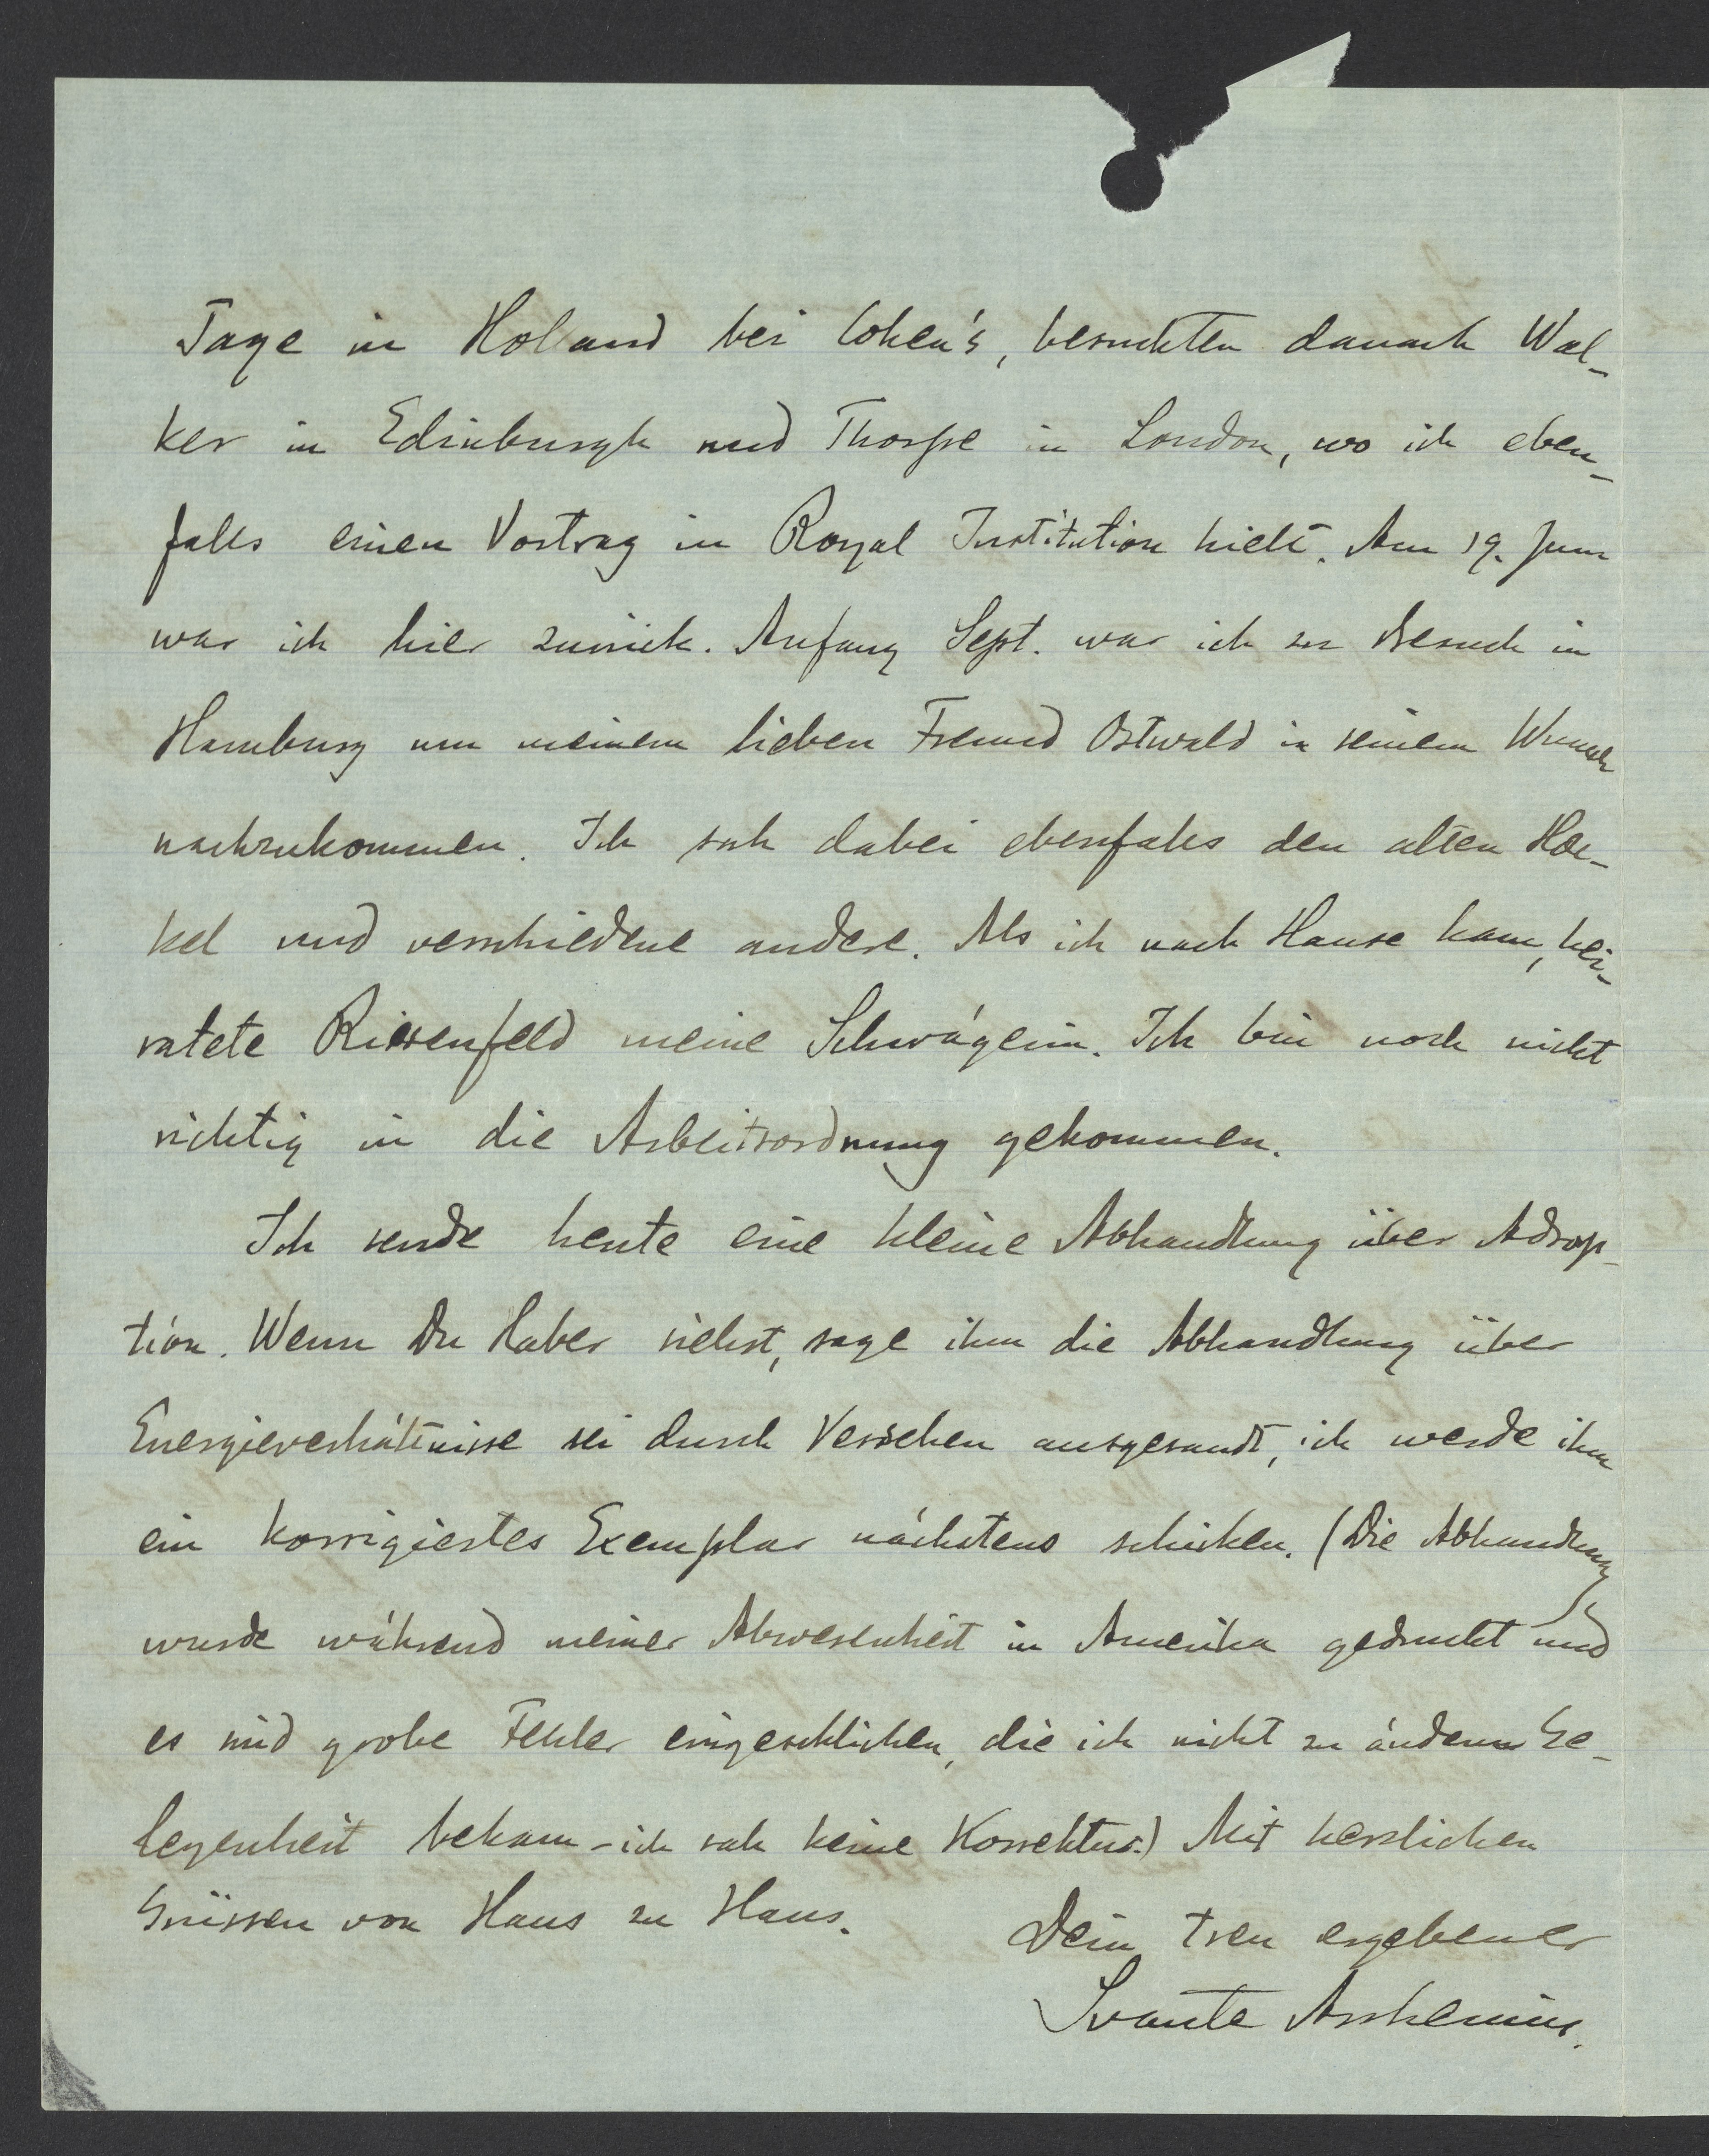 Tage in Holland bei Cohen's, besuchten danach Wal-
ker in Edinburgh und Thorpe in London, wo ich eben-
falls einen Vortrag in Royal Institution hielt. Am 19. Juni
war ich hier zurück. Anfang Sept. war ich zu Besuch in
Hamburg um meinem lieben Freund Ostwald in seinem Wunsch
nachzukommen. Ich sah dabei ebenfalls den alten Hæ-
kel und verschiedene andere. Als ich nach Hause kam, hei-
ratete Riesenfeld meine Schwägerin. Ich bin noch nicht
richtig in die Arbeitsordnung gekommen.
Ich sende heute eine kleine Abhandlung über Adsorp-
tion. Wenn Du Haber siehst, sage ihm die Abhandlung über
Energieverhältnisse sei durch Versehen ausgesandt, ich werde ihm
ein korrigiertes Exemplar nächstens schicken. (Die Abhandlung
wurde während meiner Abwesenheit in Amerika gedruckt und
es sind grobe Fehler eingeschlichen, die ich nicht zu ändern Ge-
legenheit bekam - ich sah keine Korrektur.) Mit herzlichen
Grüssen von Haus zu Haus.
Dein treu ergebener
Svante Arrhenius.